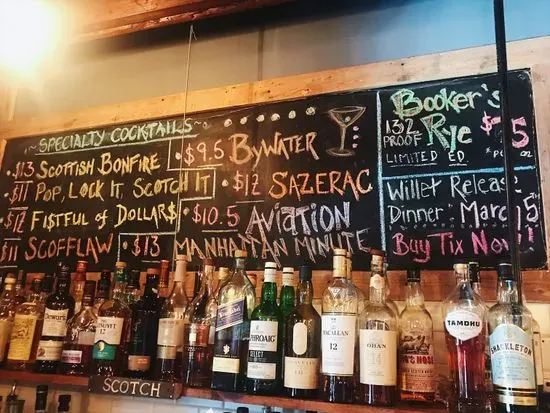 ~SPECIALTY COCKTAILS~
$13 SCOTTISH BONFIRE
$11 POP, LOCK IT, SCOTCH IT
$12 FISTFUL OF DOLLAR$
$11 SCOFFLAW
$9.5 BYWATER
$12 SAZERAC
$10.5 AVIATION
$13 MANHATTAN MINUTE
BOOKER'S
132 PROOF RYE
LIMITED ED
WILLET RELEASE
DINNER: MARCH 5
BUY TIX NOW!
SCOTCH
LAPHROAIG
SELECT
THE
MACALLAN
12
OBAN
TAMDHU
SHACKLETON